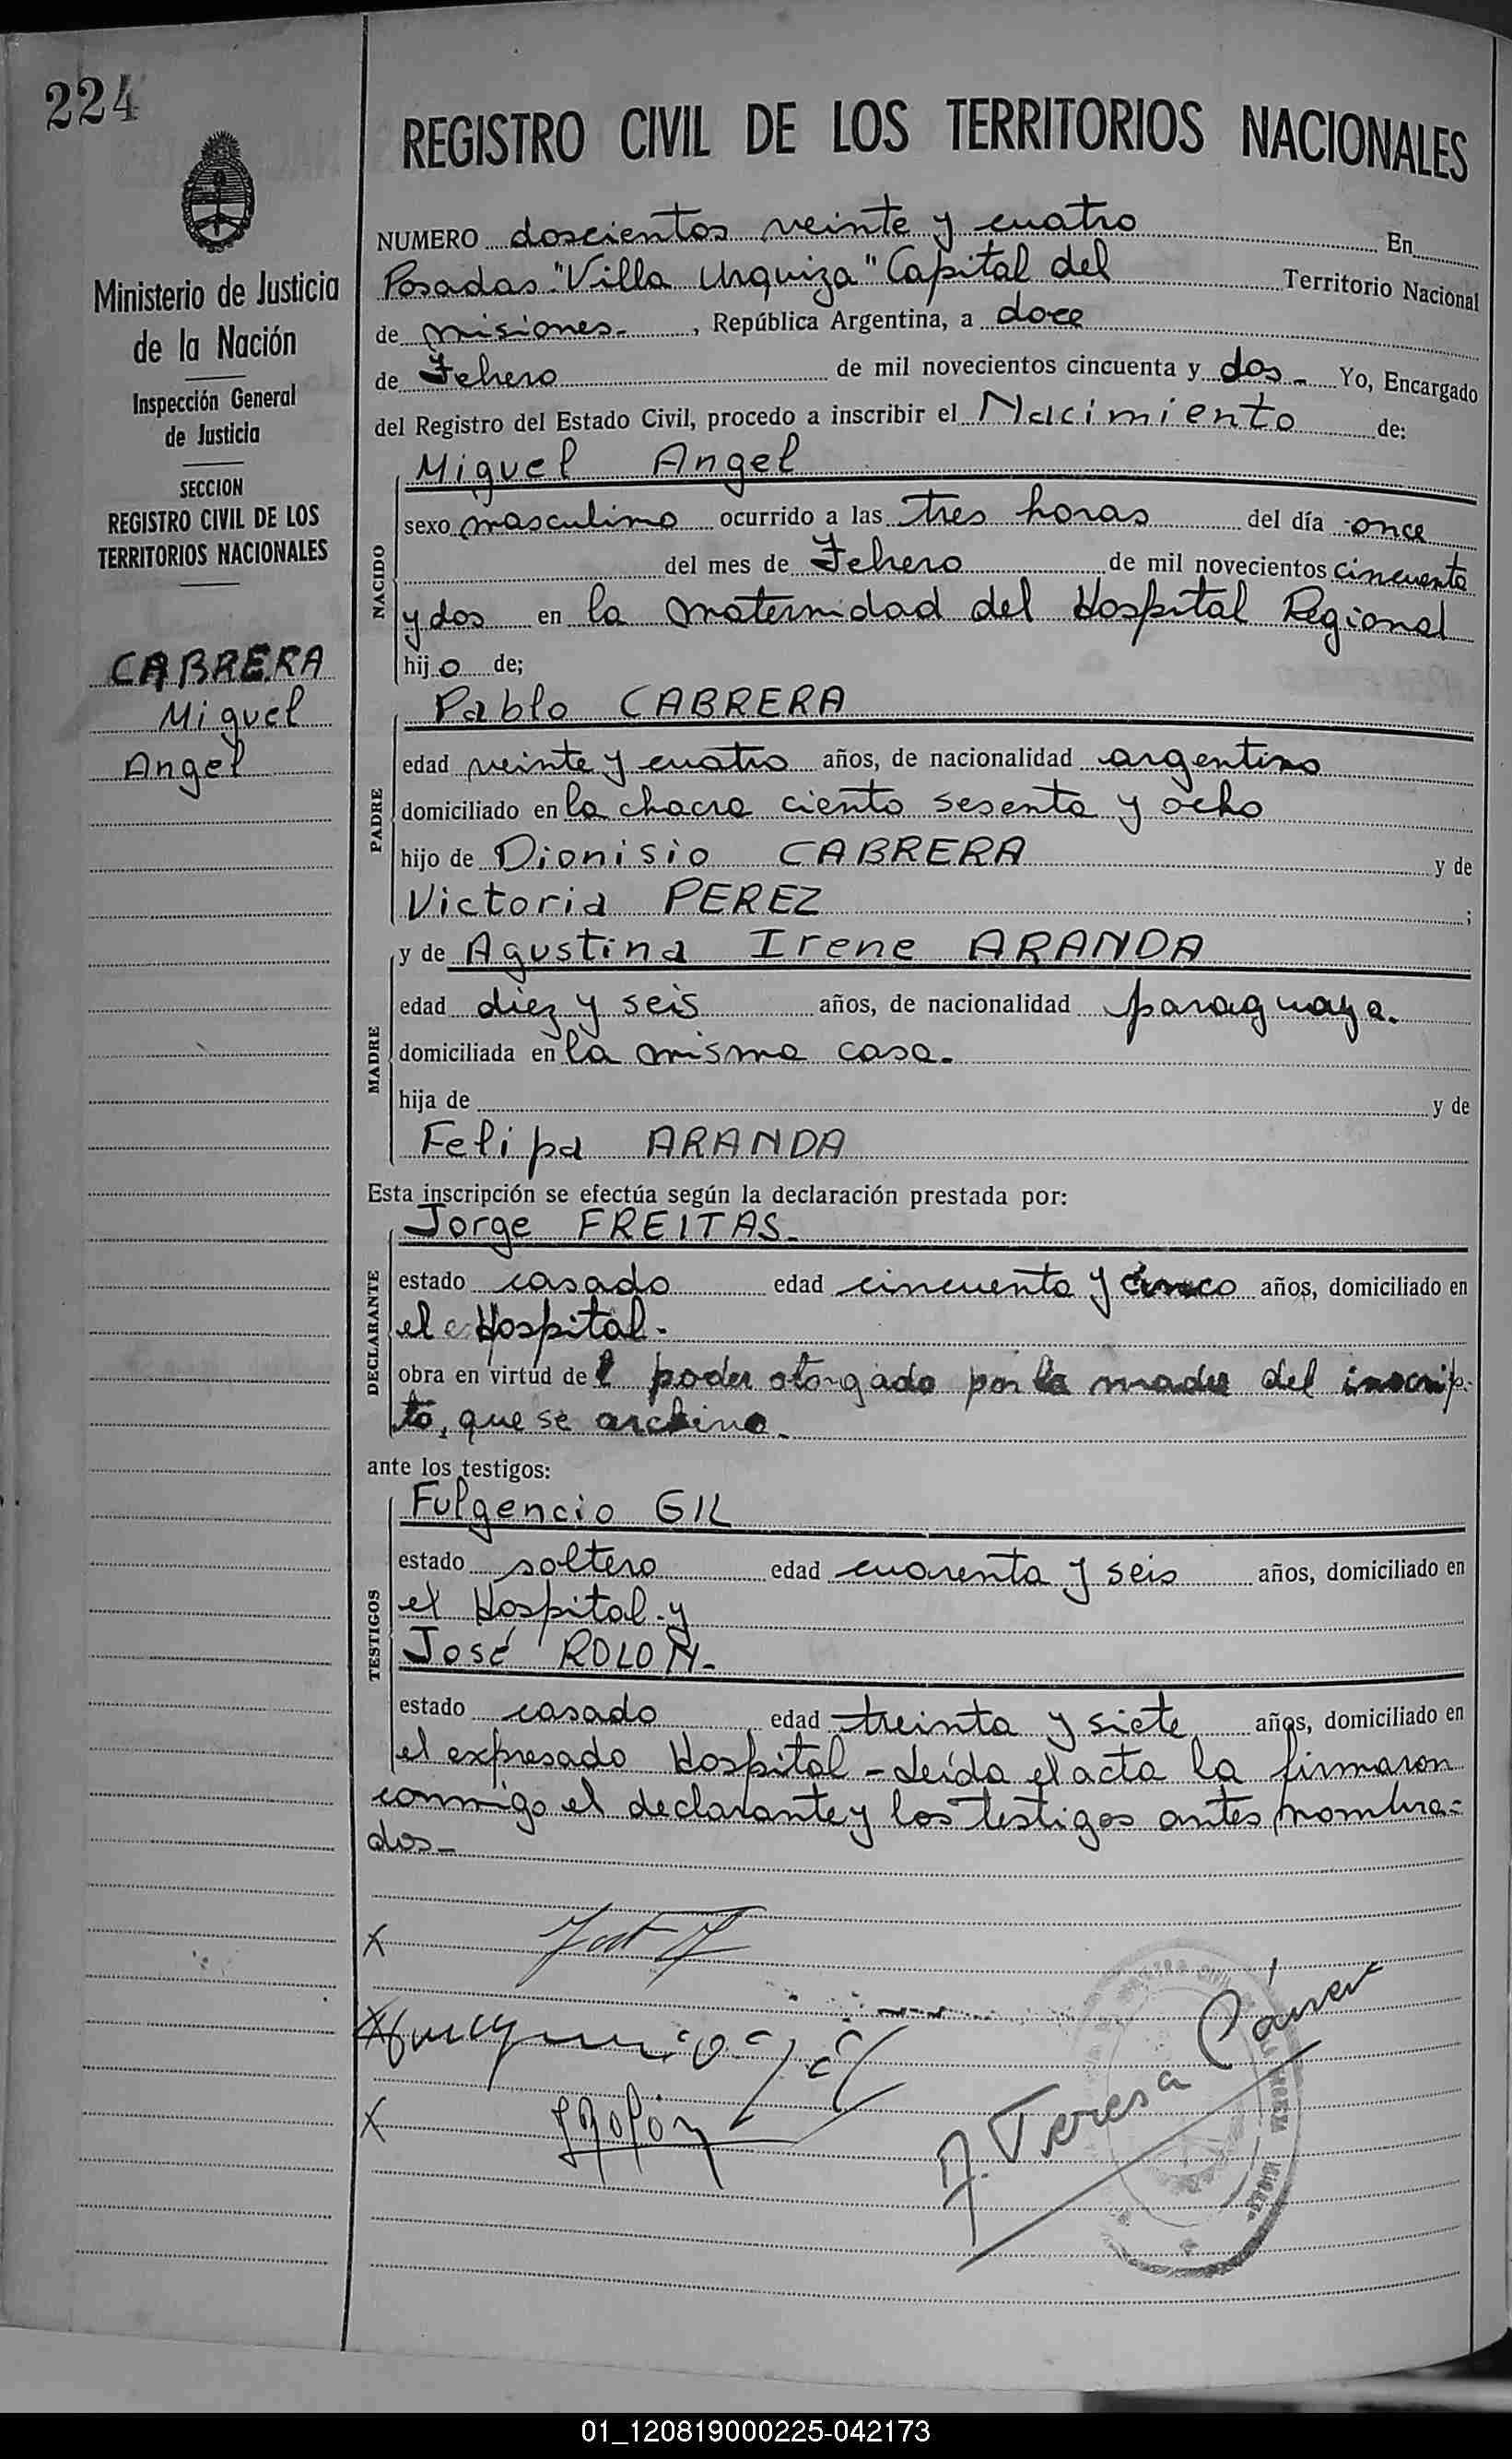 224
REGISTRO CIVIL DE LOS TERRITORIOS NACIONALES
Ministerio de Justicia
de la Nación
Inspección General
de Justicia
SECCION
REGISTRO CIVIL DE LOS
TERRITORIOS NACIONALES
CABRERA
Miguel
Angel
NUMERO doscientos veinte y cuatro En
Posadas "Villa Urquiza" Capital del Territorio Nacional
de misiones- , República Argentina, a doce
de Febrero de mil novecientos cincuenta y dos- Yo, Encargado
del Registro del Estado Civil, procedo a inscribir el Nacimiento de:
NACIDO
Miguel Angel
sexo masculino ocurrido a las tres horas del día once
del mes de Febrero de mil novecientos cincuenta
y dos en la maternidad del Hospital Regional
hijo de;
PADRE
Pablo CABRERA
edad veinte y cuatro años, de nacionalidad argentino
domiciliado en la chacra ciento sesenta y ocho
hijo de Dionisio CABRERA y de
Victoria PEREZ ;
MADRE
y de Agustina Irene ARANDA
edad diez y seis años, de nacionalidad paraguaya.
domiciliada en la misma casa.
hija de y de
Felipa ARANDA
Esta inscripción se efectúa según la declaración prestada por:
DECLARANTE
Jorge FREITAS-
estado casado edad cincuenta y cinco años, domiciliado en
el Hospital-
obra en virtud del poder otorgado por la madre del inscrip-
to, que se archiva-
ante los testigos:
TESTIGOS
Fulgencio GIL
estado soltero edad cuarenta y seis años, domiciliado en
el Hospital-y
José ROLON-
estado casado edad treinta y siete años, domiciliado en
el expresado Hospital - Leída el acta la firmaron
conmigo el declarante y los testigos antes nombra=
dos-
X
X
X
JRolón
Teresa
01_120819000225-042173